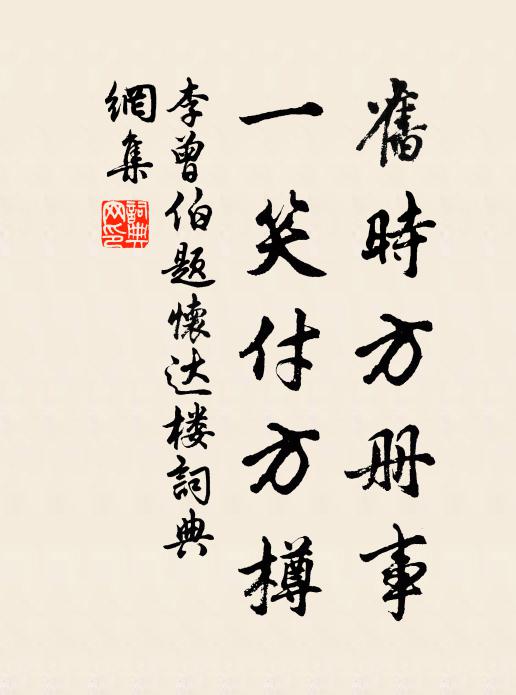 舊時方册事
一笑付方樽
李曾伯题懷达楼詞典
網集
詞典网印